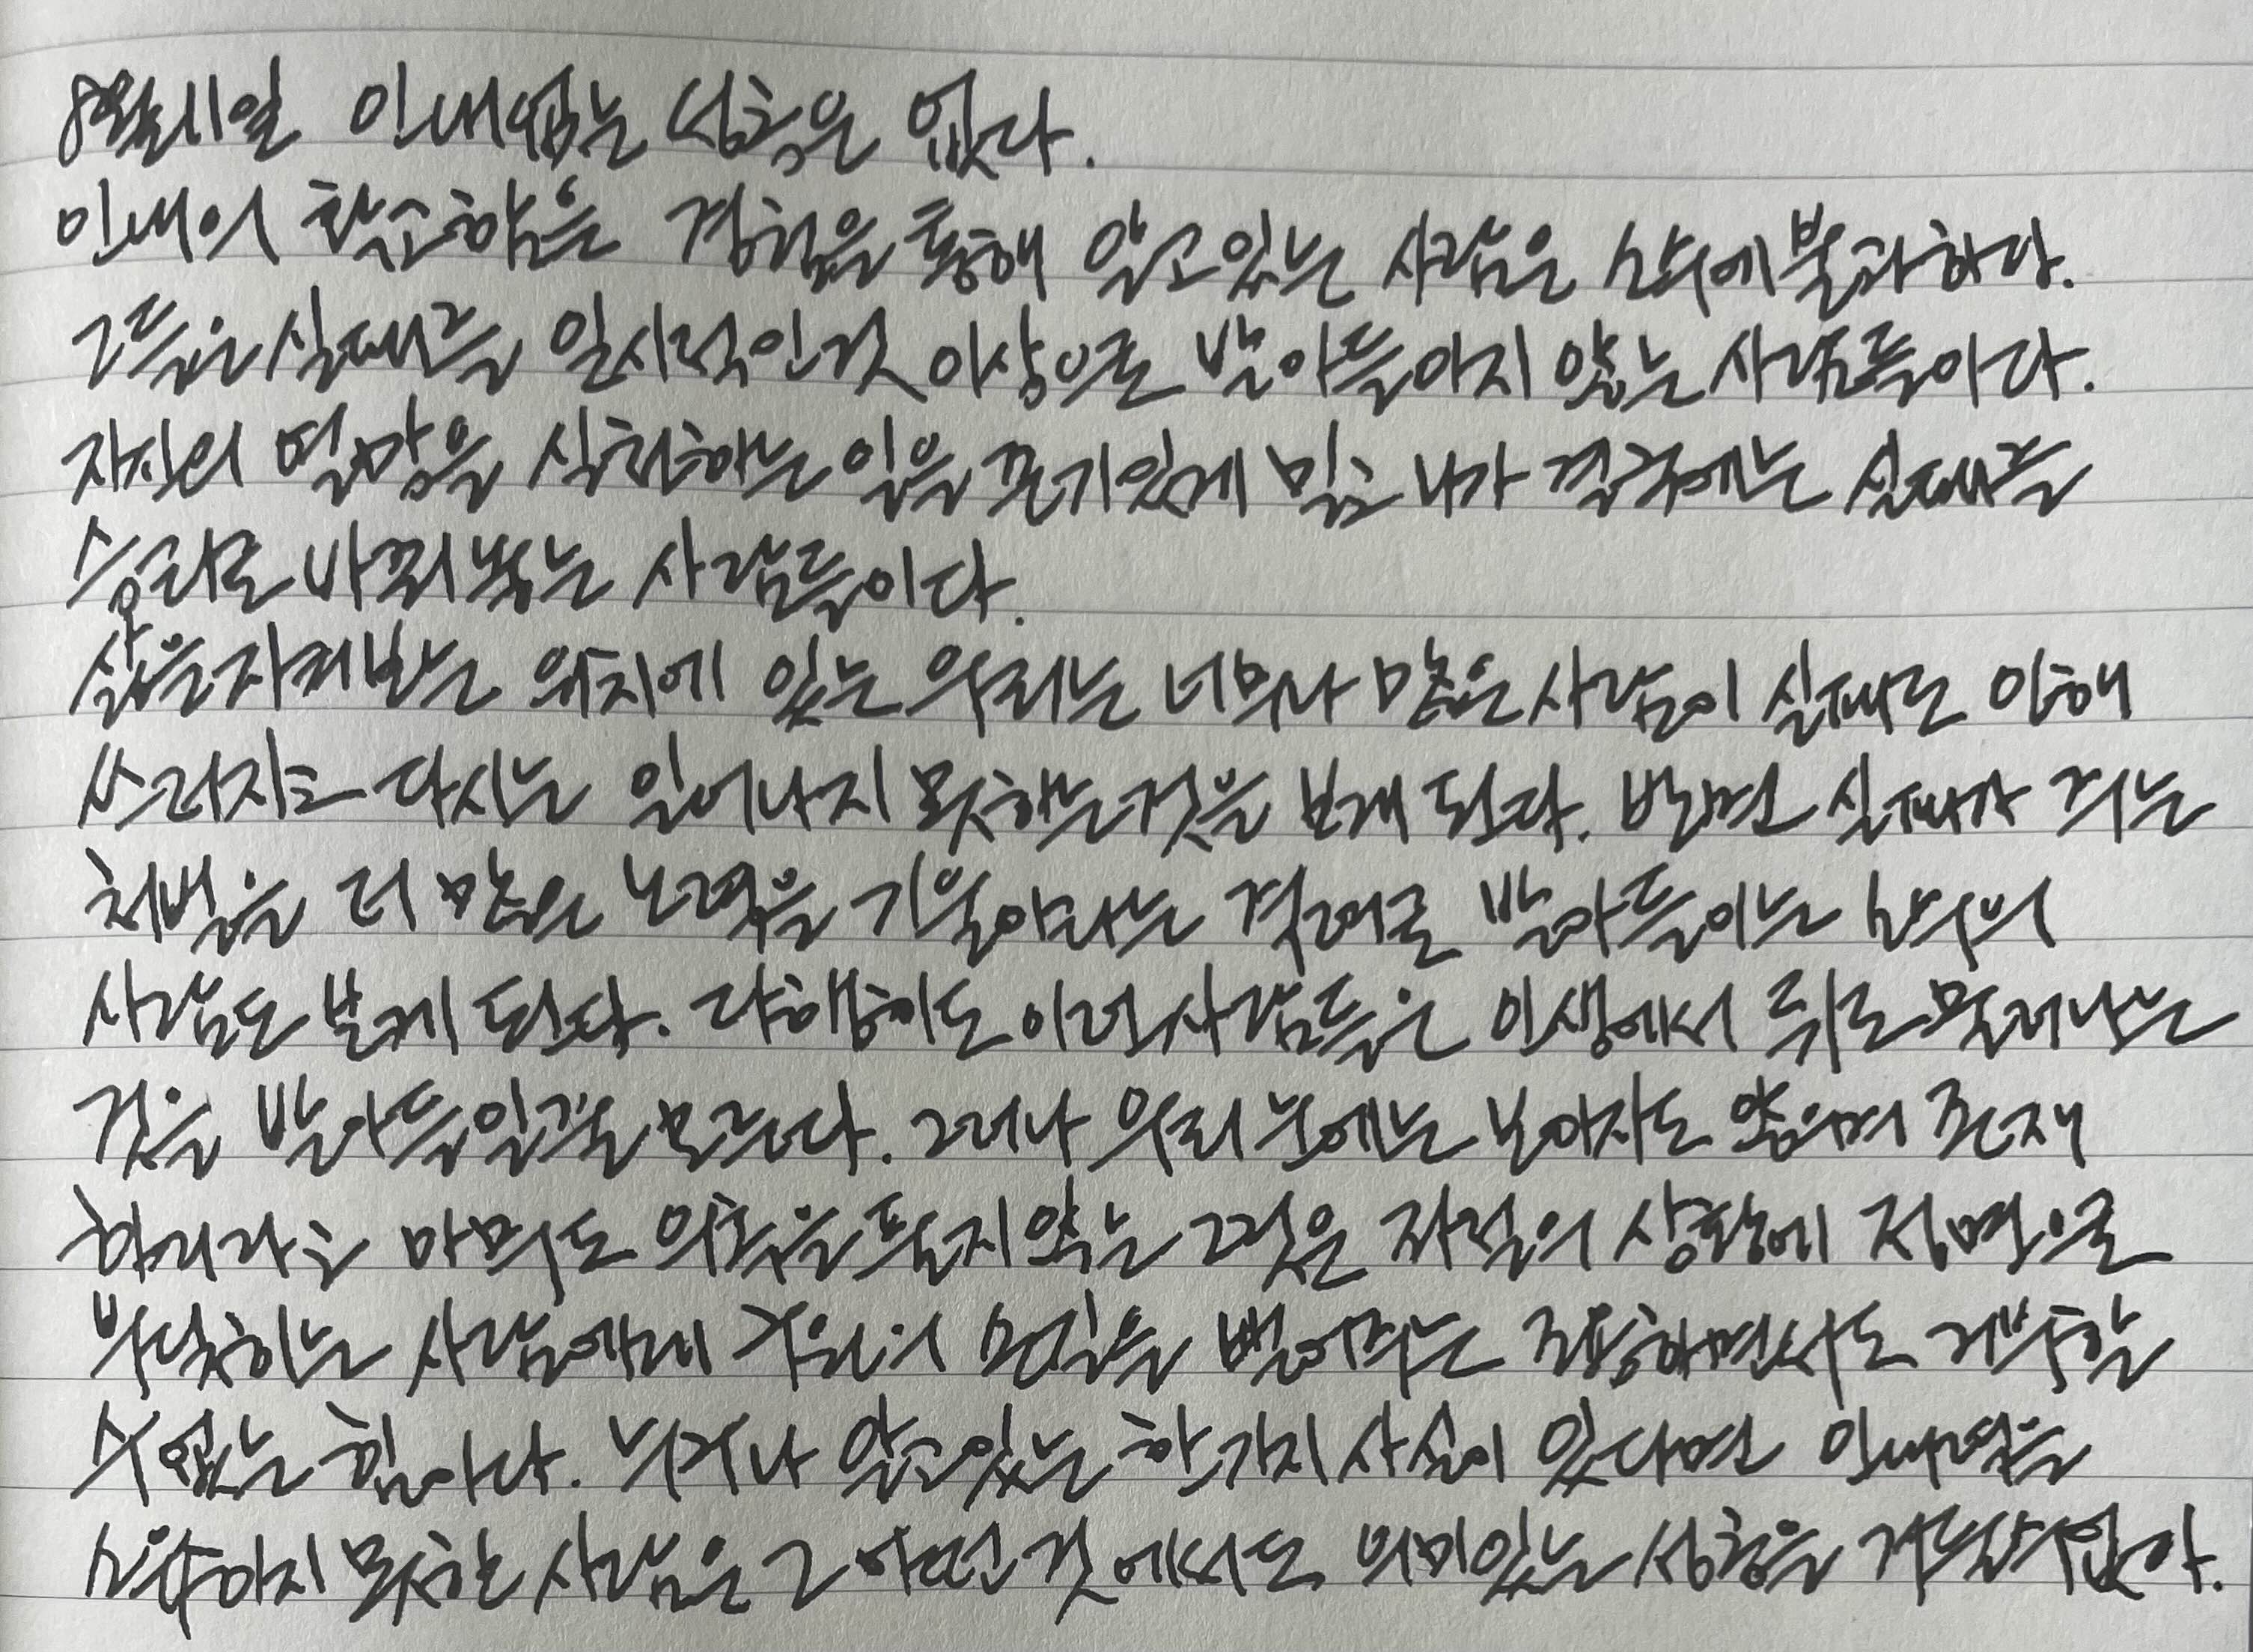 8월11일 인내없는 성공은 없다.
인내의 확고함을 경험을 통해 알고있는 사람은 소수에 불과하다.
그들은 실패를 일시적인것 이상으로 받아들이지 않는 사람들이다.
자신의 열망을 실현하는 일을 끈기있게 밀고 나가 결국에는 실패를
승리로 바꿔놓는 사람들이다.
삶을 지켜보는 위치에 있는 우리는 너무나 많은 사람이 실패로 인해
쓰러지고 다시는 일어나지 못하는것을 보게 된다. 반면 실패가 주는
처벌을 더 많은 노력을 기울이라는 격려로 받아들이는 소수의
사람도 보게 된다. 다행히도 이런사람들은 인생에서 뒤로 물러나는
것을 받아들일줄 모른다. 그러나 우리 눈에는 보이지도 않으며 존재
하리라고 아무도 의심을 품지 않는 그것은 자신의 상황에 정면으로
부딪히는 사람에게 구원의 손길을 뻗어주는 조용하면서도 거부할
수 없는 힘이다. 누구나 알고있는 한가지 사실이 있다면 인내력을
소유하지 못한 사람은 그 어떤 것에서도 의미있는 성공을 거둘수없다.